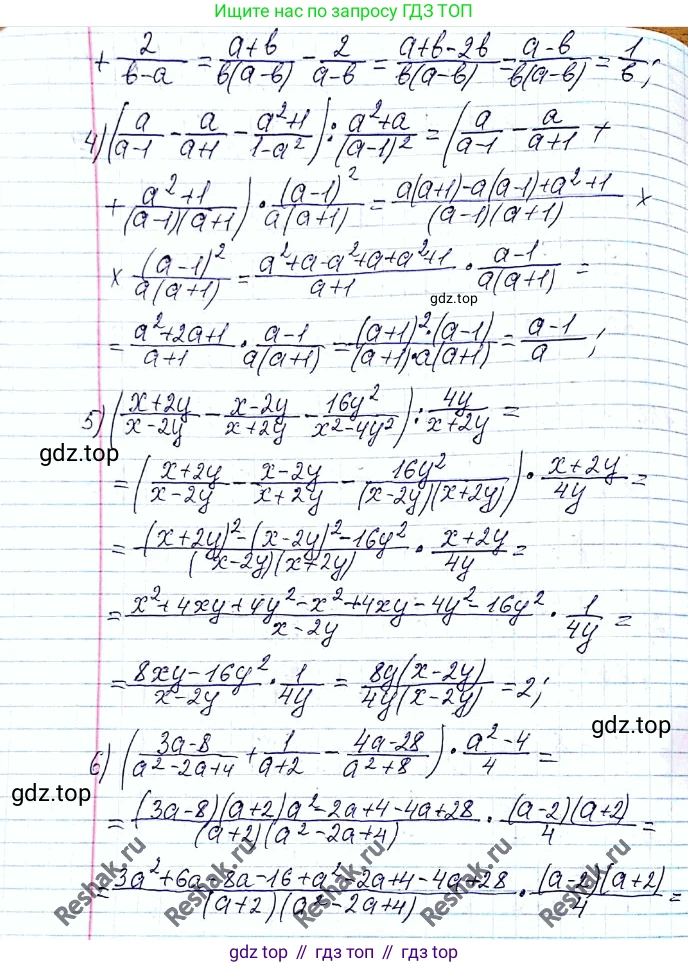 Ищите нас по запросу ГДЗ ТОП
+ 2/(в-a) = (a+в)/(в(a-в)) - 2/(a-в) = (a+в-2в)/(в(a-в)) = (a-в)/(в(a-в)) = 1/в;
4) (a/(a-1) - a/(a+1) - (a²+1)/(1-a²)) : (a²+a)/(a-1)² = (a/(a-1) - a/(a+1) +
+ (a²+1)/((a-1)(a+1))) · (a-1)²/(a(a+1)) = (a(a+1)-a(a-1)+a²+1)/((a-1)(a+1)) ×
× (a-1)²/(a(a+1)) = (a²+a-a²+a+a²+1)/(a+1) · (a-1)/(a(a+1)) =
gdz.top
= (a²+2a+1)/(a+1) · (a-1)/(a(a+1)) = ((a+1)²·(a-1))/((a+1)·a(a+1)) = (a-1)/a;
5) ((x+2y)/(x-2y) - (x-2y)/(x+2y) - 16y²/(x²-4y²)) : 4y/(x+2y) =
gdz.top
= ((x+2y)/(x-2y) - (x-2y)/(x+2y) - 16y²/((x-2y)(x+2y))) · (x+2y)/4y =
= ((x+2y)²-(x-2y)²-16y²)/((x-2y)(x+2y)) · (x+2y)/4y =
= (x²+4xy+4y²-x²+4xy-4y²-16y²)/(x-2y) · 1/4y =
= (8xy-16y²)/(x-2y) · 1/4y = 8y(x-2y)/(4y(x-2y)) = 2;
gdz.top
6) ((3a-8)/(a²-2a+4) + 1/(a+2) - (4a-28)/(a²+8)) · (a²-4)/4 =
gdz.top
= ((3a-8)(a+2)a²-2a+4-4a+28)/((a+2)(a²-2a+4)) · ((a-2)(a+2))/4 =
= (3a²+6a-8a-16+a²-2a+4-4a+28)/((a+2)(a²-2a+4)) · ((a-2)(a+2))/4 =
Reshak.ru
Reshak.ru
Reshak.ru
Reshak.ru
Reshak.ru
gdz top // гдз топ // гдз.топ